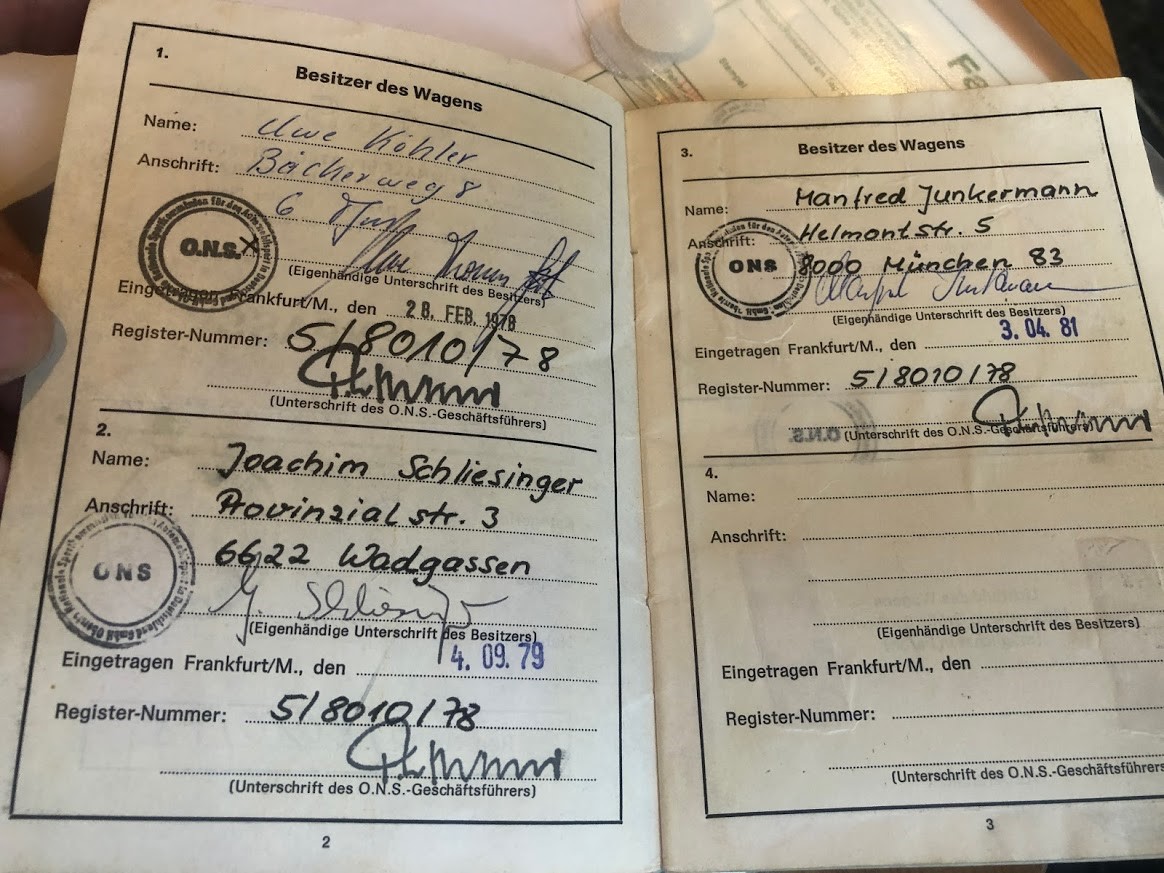 1.
Besitzer des Wagens
Name: Uwe Köhler
Anschrift: Bächerweg 8
6
O.N.S.
(Eigenhändige Unterschrift des Besitzers)
Eingetragen Frankfurt/M., den 28. FEB. 1978
Register-Nummer: 5/8010/78
(Unterschrift des O.N.S.-Geschäftsführers)
2.
Name: Joachim Schliesinger
Anschrift: Provinzialstr. 3
6622 Wadgassen
ONS
(Eigenhändige Unterschrift des Besitzers)
Eingetragen Frankfurt/M., den 4. 09. 79
Register-Nummer: 5/8010/78
(Unterschrift des O.N.S.-Geschäftsführers)
2
3.
Besitzer des Wagens
Name: Manfred Junkermann
Anschrift: Helmontstr. 5
8000 München 83
ONS
(Eigenhändige Unterschrift des Besitzers)
Eingetragen Frankfurt/M., den 3. 04. 81
Register-Nummer: 5/8010/78
(Unterschrift des O.N.S.-Geschäftsführers)
4.
Name:
Anschrift:
(Eigenhändige Unterschrift des Besitzers)
Eingetragen Frankfurt/M., den
Register-Nummer:
(Unterschrift des O.N.S.-Geschäftsführers
3